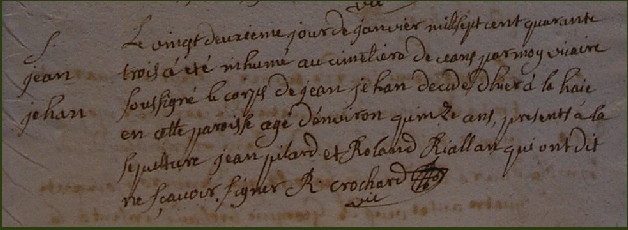 vic
S.
jean
jehan
Le vingt deuxieme jour de janvier mil sept cent quarante
trois a été inhumé au cimetiere de ceans par moy vicaire
soussigné le corps de jean jehan decidé d'hier à la haie
en cette paroisse agé d'environ quinze ans, presents à la
sepulture jean pilard et Roland Riallan qui ont dit
ne sçavoir signer R crochard
vic